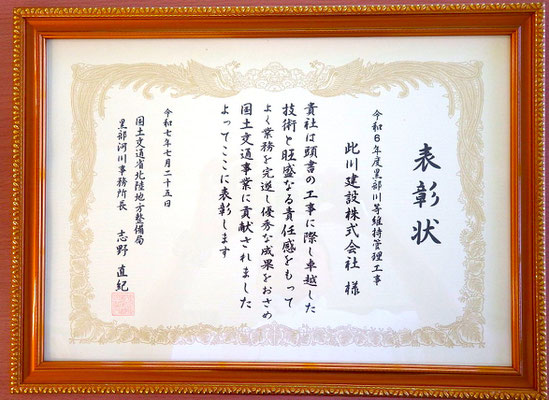 表彰状
令和6年度黒部川等維持管理工事
此川建設株式会社 様
貴社は頭書の工事に際し卓越した
技術と旺盛なる責任感をもって
よく業務を完遂し優秀な成果をおさめ
国土交通事業に貢献されました
よってここに表彰します
令和七年七月二十五日
国土交通省北陸地方整備局
黒部河川事務所長 志野 直紀